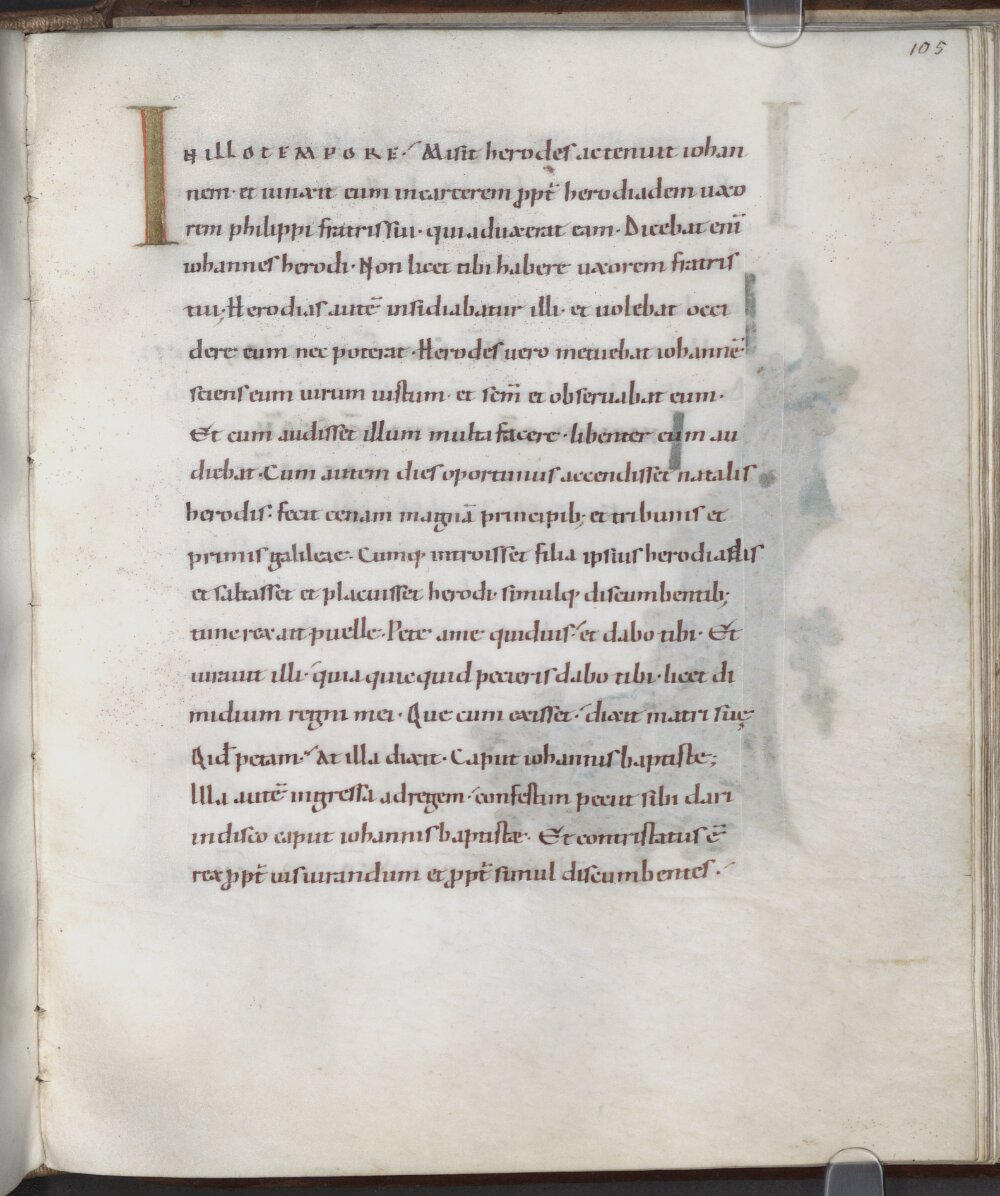 105
IN ILLO TEMPORE· Misit herodes ac tenuit iohan
nem· et uinxit eum in carcerem ppt̄ herodiadem uxo
rem philippi fratris sui· quia duxerat eam· Dicebat enī
iohannes herodi· Non licet tibi habere uxorem fratris
tui; Herodias autē insidiabatur illi· et uolebat occi
dere eum nec poterat· Herodes uero metuebat iohannē
sciens eum uirum iustum· et scm̄ et obseruabat eum·
Et cum audisset illum multa facere· libenter eum au
diebat· Cum autem dies oportunus accendisset natalis
herodis· fecit cenam magnā principib; et tribunis et
primis galileae· Cumq; introisset filia ipsius herodiadis
et saltasset et placuisset herodi· simulq; discumbentib;
tunc rex ait puelle· Pete a me quid uis· et dabo tibi· Et
iurauit illi· quia quicquid pecieris dabo tibi· licet di
midium regni mei· Que cum exisset· dixit matri suę
Qid petam· At illa dixit· Caput iohannis baptiste;
Illa autē ingressa ad regem· confestim peciit sibi dari
in disco caput iohannis baptistae· Et contristatus ē
rex ppt̄ iusiurandum et ppt̄ simul discumbentes·